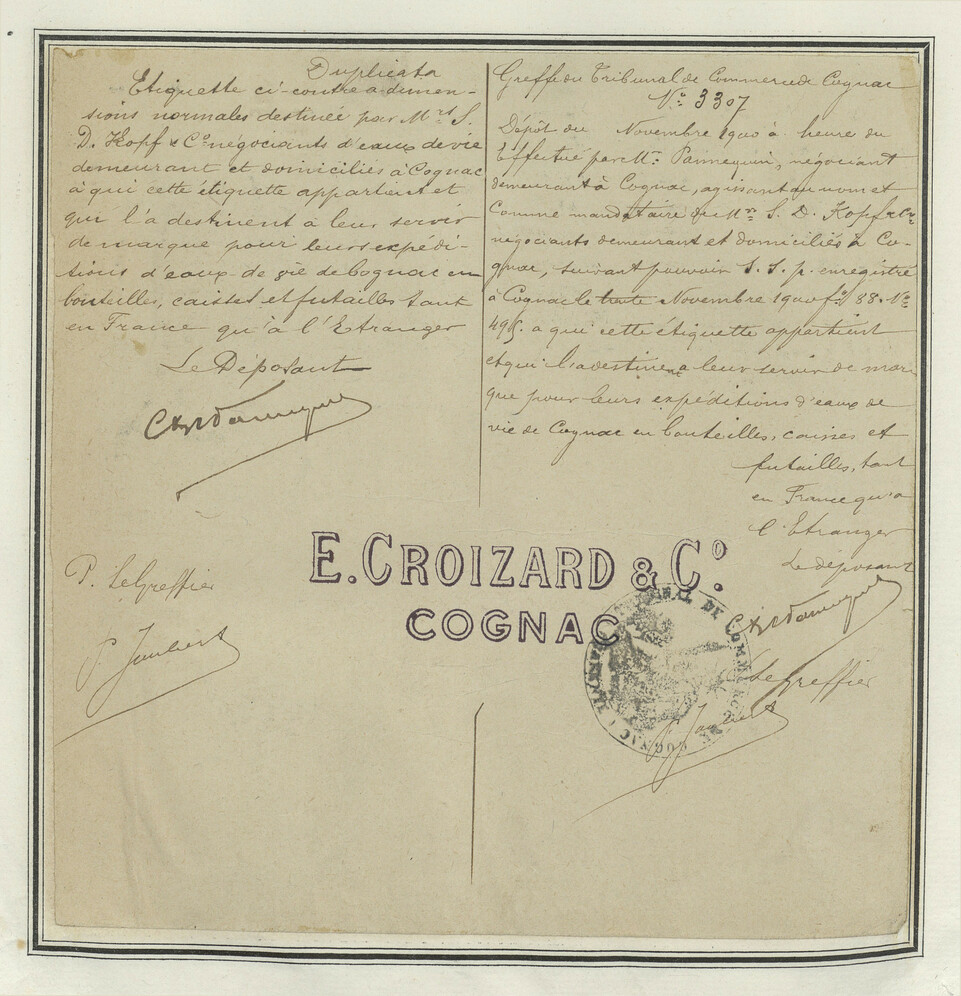 Duplicata
Etiquette ci-contre a dimen-
sions normales destinée par Mrs S.
D. Kopf & Co négociants d'eaux de vie
demeurant et domiciliés à Cognac
à qui cette étiquette appartient et
qui l'a destinent à leur servir
de marque pour leurs expédi-
tions d'eaux-de vie de Cognac en
bouteilles, caisses et futailles tant
en France qu'à l'Etranger
Le Déposant
P. Le Greffier
P. Jaubert
Greffe du Tribunal de Commerce de Cognac
No: 3307
Dépôt du Novembre 1900 à heure du
Effectué par Mr: Pannequin, négociant
demeurant à Cognac, agissant au nom et
comme mandataire de Mrs S. D. Kopf & Co
négociants demeurant et domiciliés à Co-
gnac, suivant pouvoir S. S. p. enregistré
à Cognac le trente Novembre 1900 fo 88. No
495. a qui cette étiquette appartient
et qui l'a destinent a leur servir de mar-
que pour leurs expéditions d'eaux de
vie de Cognac en bouteilles, caisses et
futailles, tant
en France qu'a
l'Etranger
Le déposant
Le Greffier
P. Jaubert
E. CROIZARD & Co.
COGNAC
TRIBUNAL DE COMMERCE DE COGNAC